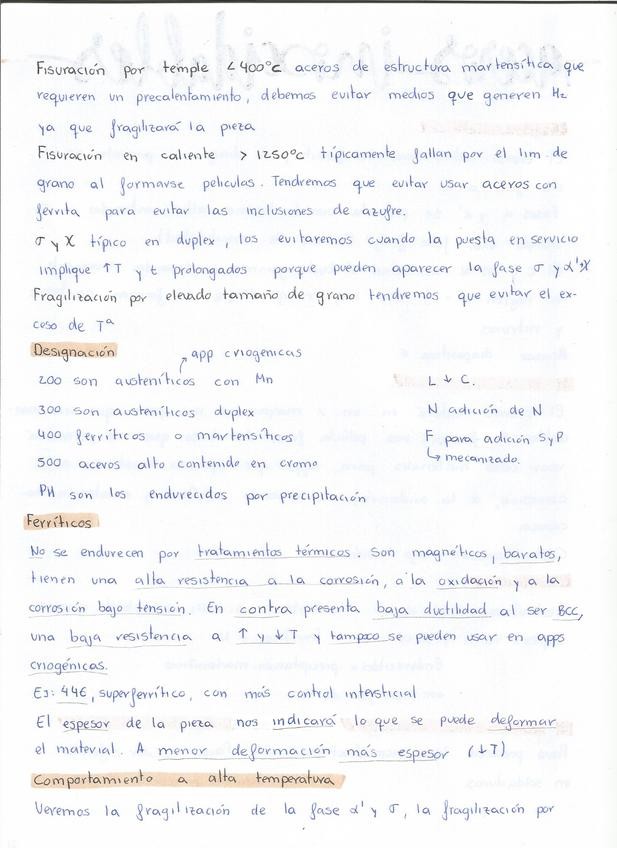 Fisuración por temple < 400°C aceros de estructura martensítica que
requieren un precalentamiento, debemos evitar medios que generen H₂
ya que fragilizará la pieza
Fisuración en caliente > 1250°C típicamente fallan por el lim. de
grano al formarse peliculas. Tendremos que evitar usar aceros con
ferrita para evitar las inclusiones de azufre.
σ y χ típico en duplex, los evitaremos cuando la puesta en servicio
implique ↑T y t prolongados porque pueden aparecer la fase σ y α' y χ
Fragilización por elevado tamaño de grano tendremos que evitar el ex-
ceso de Tª
Designación
app criogénicas
200 son austeníticos con Mn
L ↓ C.
300 son austeníticos duplex
N adición de N
400 ferríticos o martensíticos
F para adición S y P
↳ mecanizado.
500 aceros alto contenido en cromo
PH son los endurecidos por precipitación
Ferríticos
No se endurecen por tratamientos térmicos. Son magnéticos, baratos,
tienen una alta resistencia a la corrosión, a la oxidación y a la
corrosión bajo tensión. En contra presenta baja ductilidad al ser BCC,
una baja resistencia a ↑ y ↓ T y tampoco se pueden usar en apps
criogénicas.
Ej: 446, superferrítico, con más control intersticial
El espesor de la pieza nos indicará lo que se puede deformar
el material. A menor deformación más espesor (↓T)
Comportamiento a alta temperatura
Veremos la fragilización de la fase α' y σ, la fragilización por